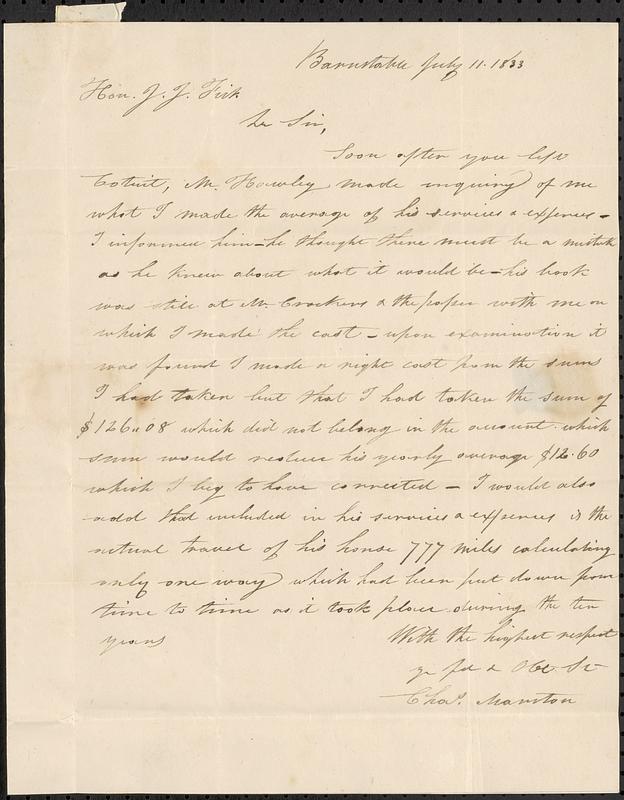 Barnstable July 11. 1833
Hon. J. J. Fisk
Dr Sir,
Soon after you left
Cotuit, Mr. Hawley made inquiry of me
what I made the average of his services & expenses -
I informed him - he thought there must be a mistake
as he knew about what it would be - his book
was still at Mr. Crockers & the paper with me on
which I made the cast - upon examination it
was found I made a right cast from the sums
I had taken but that I had taken the sum of
$126.08 which did not belong in the account. which
sum would reduce his yearly average $12.60
which I beg to have corrected - I would also
add that included in his services & expenses is the
actual travel of his horse 777 miles calculating
only one way which had been put down from
time to time as it took place during the ten
years
With the highest respect
yr & Obt. St
Chas. Marston